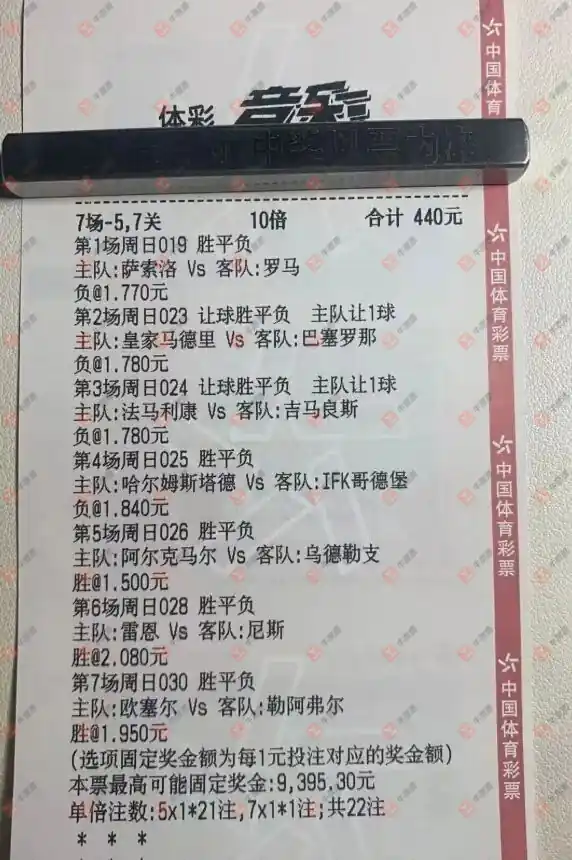 体彩 竞彩
7场-5,7关 10倍 合计 440元
第1场周日019 胜平负
主队:萨索洛 Vs 客队:罗马
负@1.770元
第2场周日023 让球胜平负 主队让1球
主队:皇家马德里 Vs 客队:巴塞罗那
负@1.780元
第3场周日024 让球胜平负 主队让1球
主队:法马利康 Vs 客队:吉马良斯
负@1.780元
第4场周日025 胜平负
主队:哈尔姆斯塔德 Vs 客队:IFK哥德堡
负@1.840元
第5场周日026 胜平负
主队:阿尔克马尔 Vs 客队:乌德勒支
胜@1.500元
第6场周日028 胜平负
主队:雷恩 Vs 客队:尼斯
胜@2.080元
第7场周日030 胜平负
主队:欧塞尔 Vs 客队:勒阿弗尔
胜@1.950元
(选项固定奖金额为每1元投注对应的奖金额)
本票最高可能固定奖金:9,395.30元
单倍注数:5x1*21注,7x1*1注;共22注
* * *
中国体育
中国体育彩票
中国体育彩票
中国体育彩票